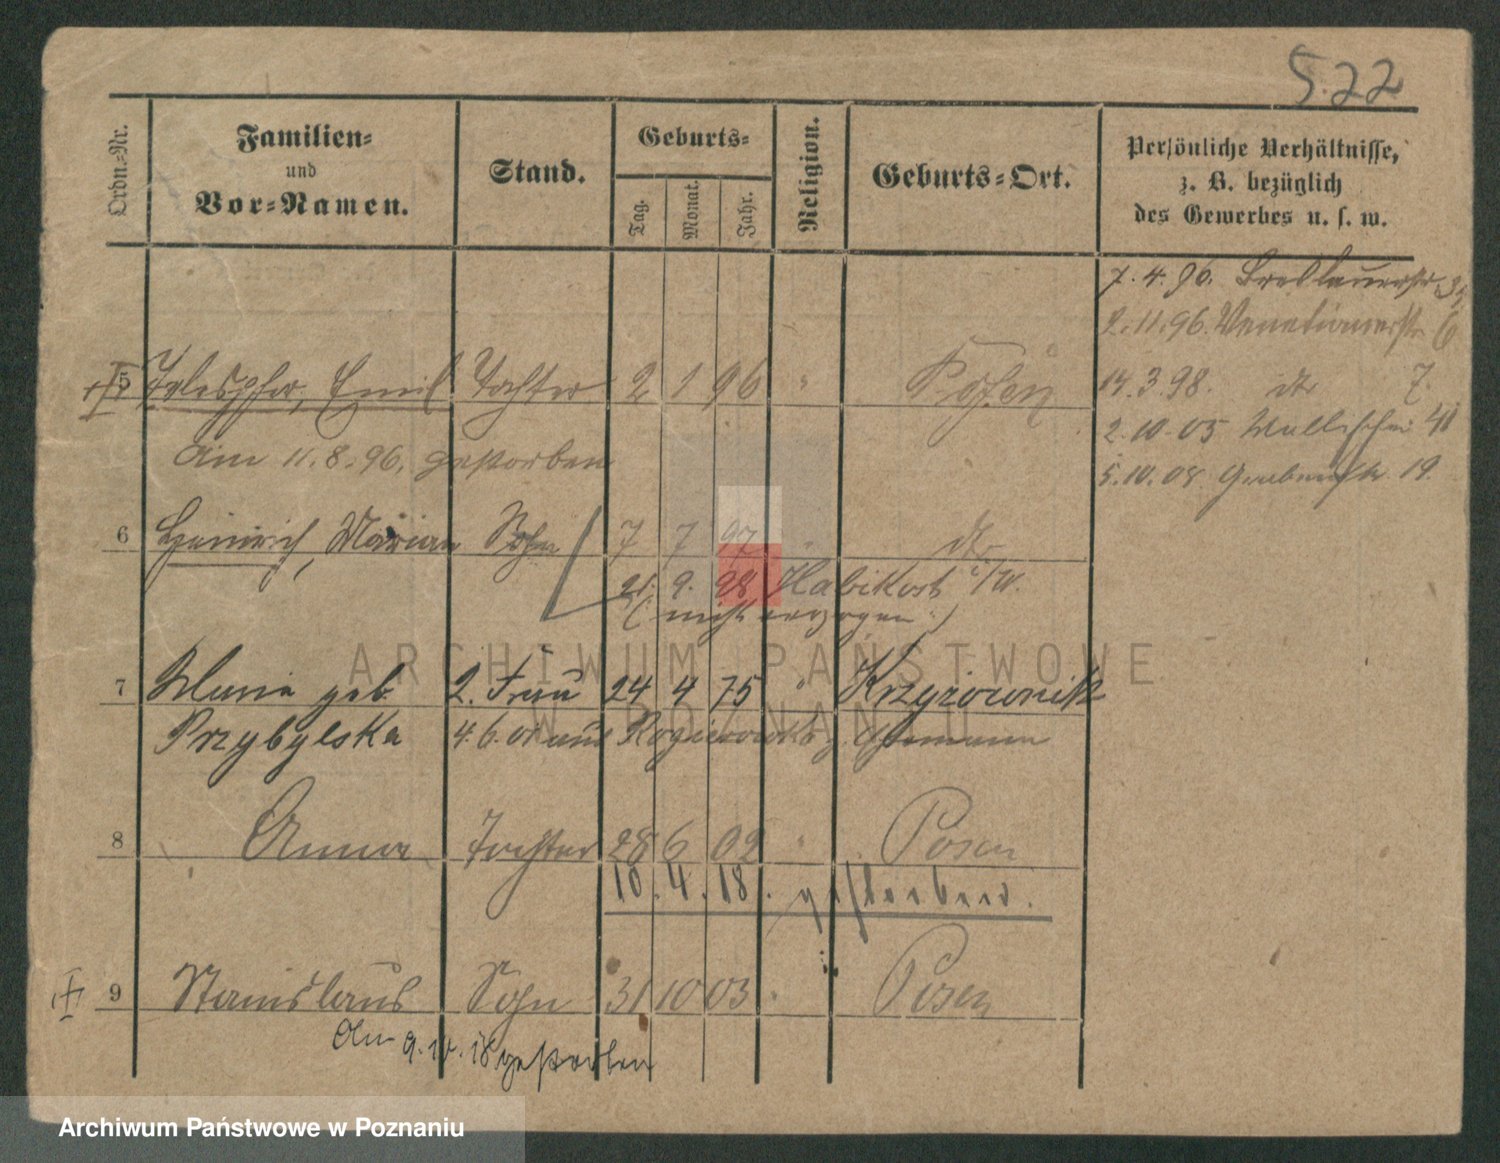 5.22
Ordn.-Nr.
Familien-
und
Vor-Namen.
Stand.
Geburts-
Tag.
Monat.
Jahr.
Religion.
Geburts-Ort.
Persönliche Verhältnisse,
z. B. bezüglich
des Gewerbes u. s. w.
7. 4. 96. Breslauerstr.
2. 11. 96. Venetianerstr. 6
5 Telesphor, Emil Tochter 2 1 96 " Posen
14. 3. 98. dto 7.
2. 10. 05 Wallischei
Am 11. 8. 96. gestorben
5. 10. 08 Grabenstr. 19.
6 Heinrich, Marian Sohn 7 7 97 " dto
21. 9. 98 i/W.
(: nicht erzogen :)
ARCHIWUM PAŃSTWOWE
W POZNANIU
7 Maria geb. 2. Frau 24 4 75 " Krzyżownik
Przybylska 4. 6. 01 aus
8 Anna Tochter 28 6 02 " Posen
10. 4. 18. gestorben.
9 Stanislaus Sohn 31 10 03 " Posen
Am 9. 10. 18 gestorben
Archiwum Państwowe w Poznaniu